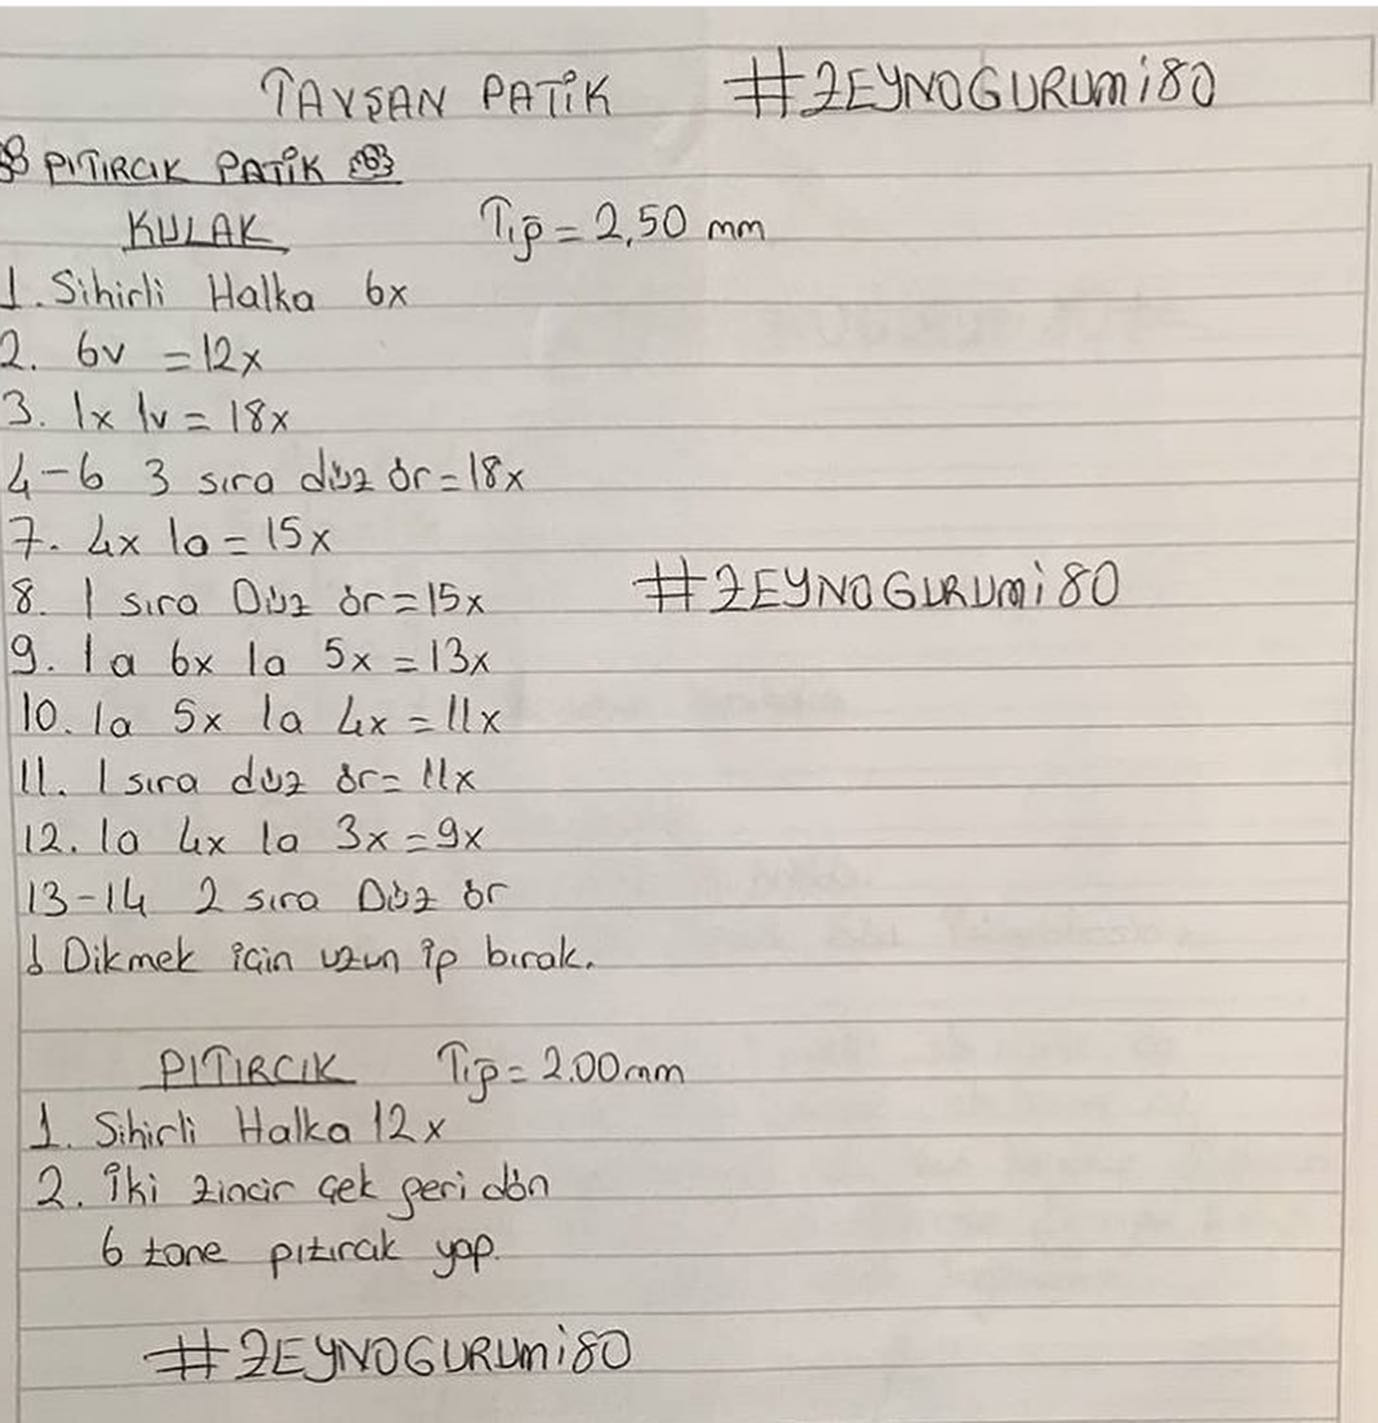 TAVŞAN PATİK #ZEYNOGURUMİ80
PITIRCIK PATİK
KULAK Tığ = 2,50 mm
1. Sihirli Halka 6x
2. 6v = 12x
3. 1x 1v = 18x
4-6 3 sıra düz ör = 18x
7. 4x 1a = 15x
8. 1 sıra Düz ör = 15x #ZEYNOGURUMİ80
9. 1a 6x 1a 5x = 13x
10. 1a 5x 1a 4x = 11x
11. 1 sıra düz ör = 11x
12. 1a 4x 1a 3x = 9x
13-14 2 sıra Düz ör
! Dikmek için uzun ip bırak.
PITIRCIK Tığ = 2.00mm
1. Sihirli Halka 12x
2. İki zincir çek geri dön
6 tane pıtırcık yap.
#ZEYNOGURUMİ80